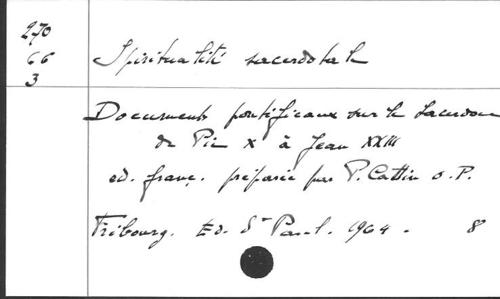 270
66
3
Spiritualité sacerdotale
Documents pontificaux sur le sacerdoce
de Pie X à Jean XXIII
ed. franç. préparée par P. Cattin o.P.
Fribourg. Ed. St Paul. 1964. 8